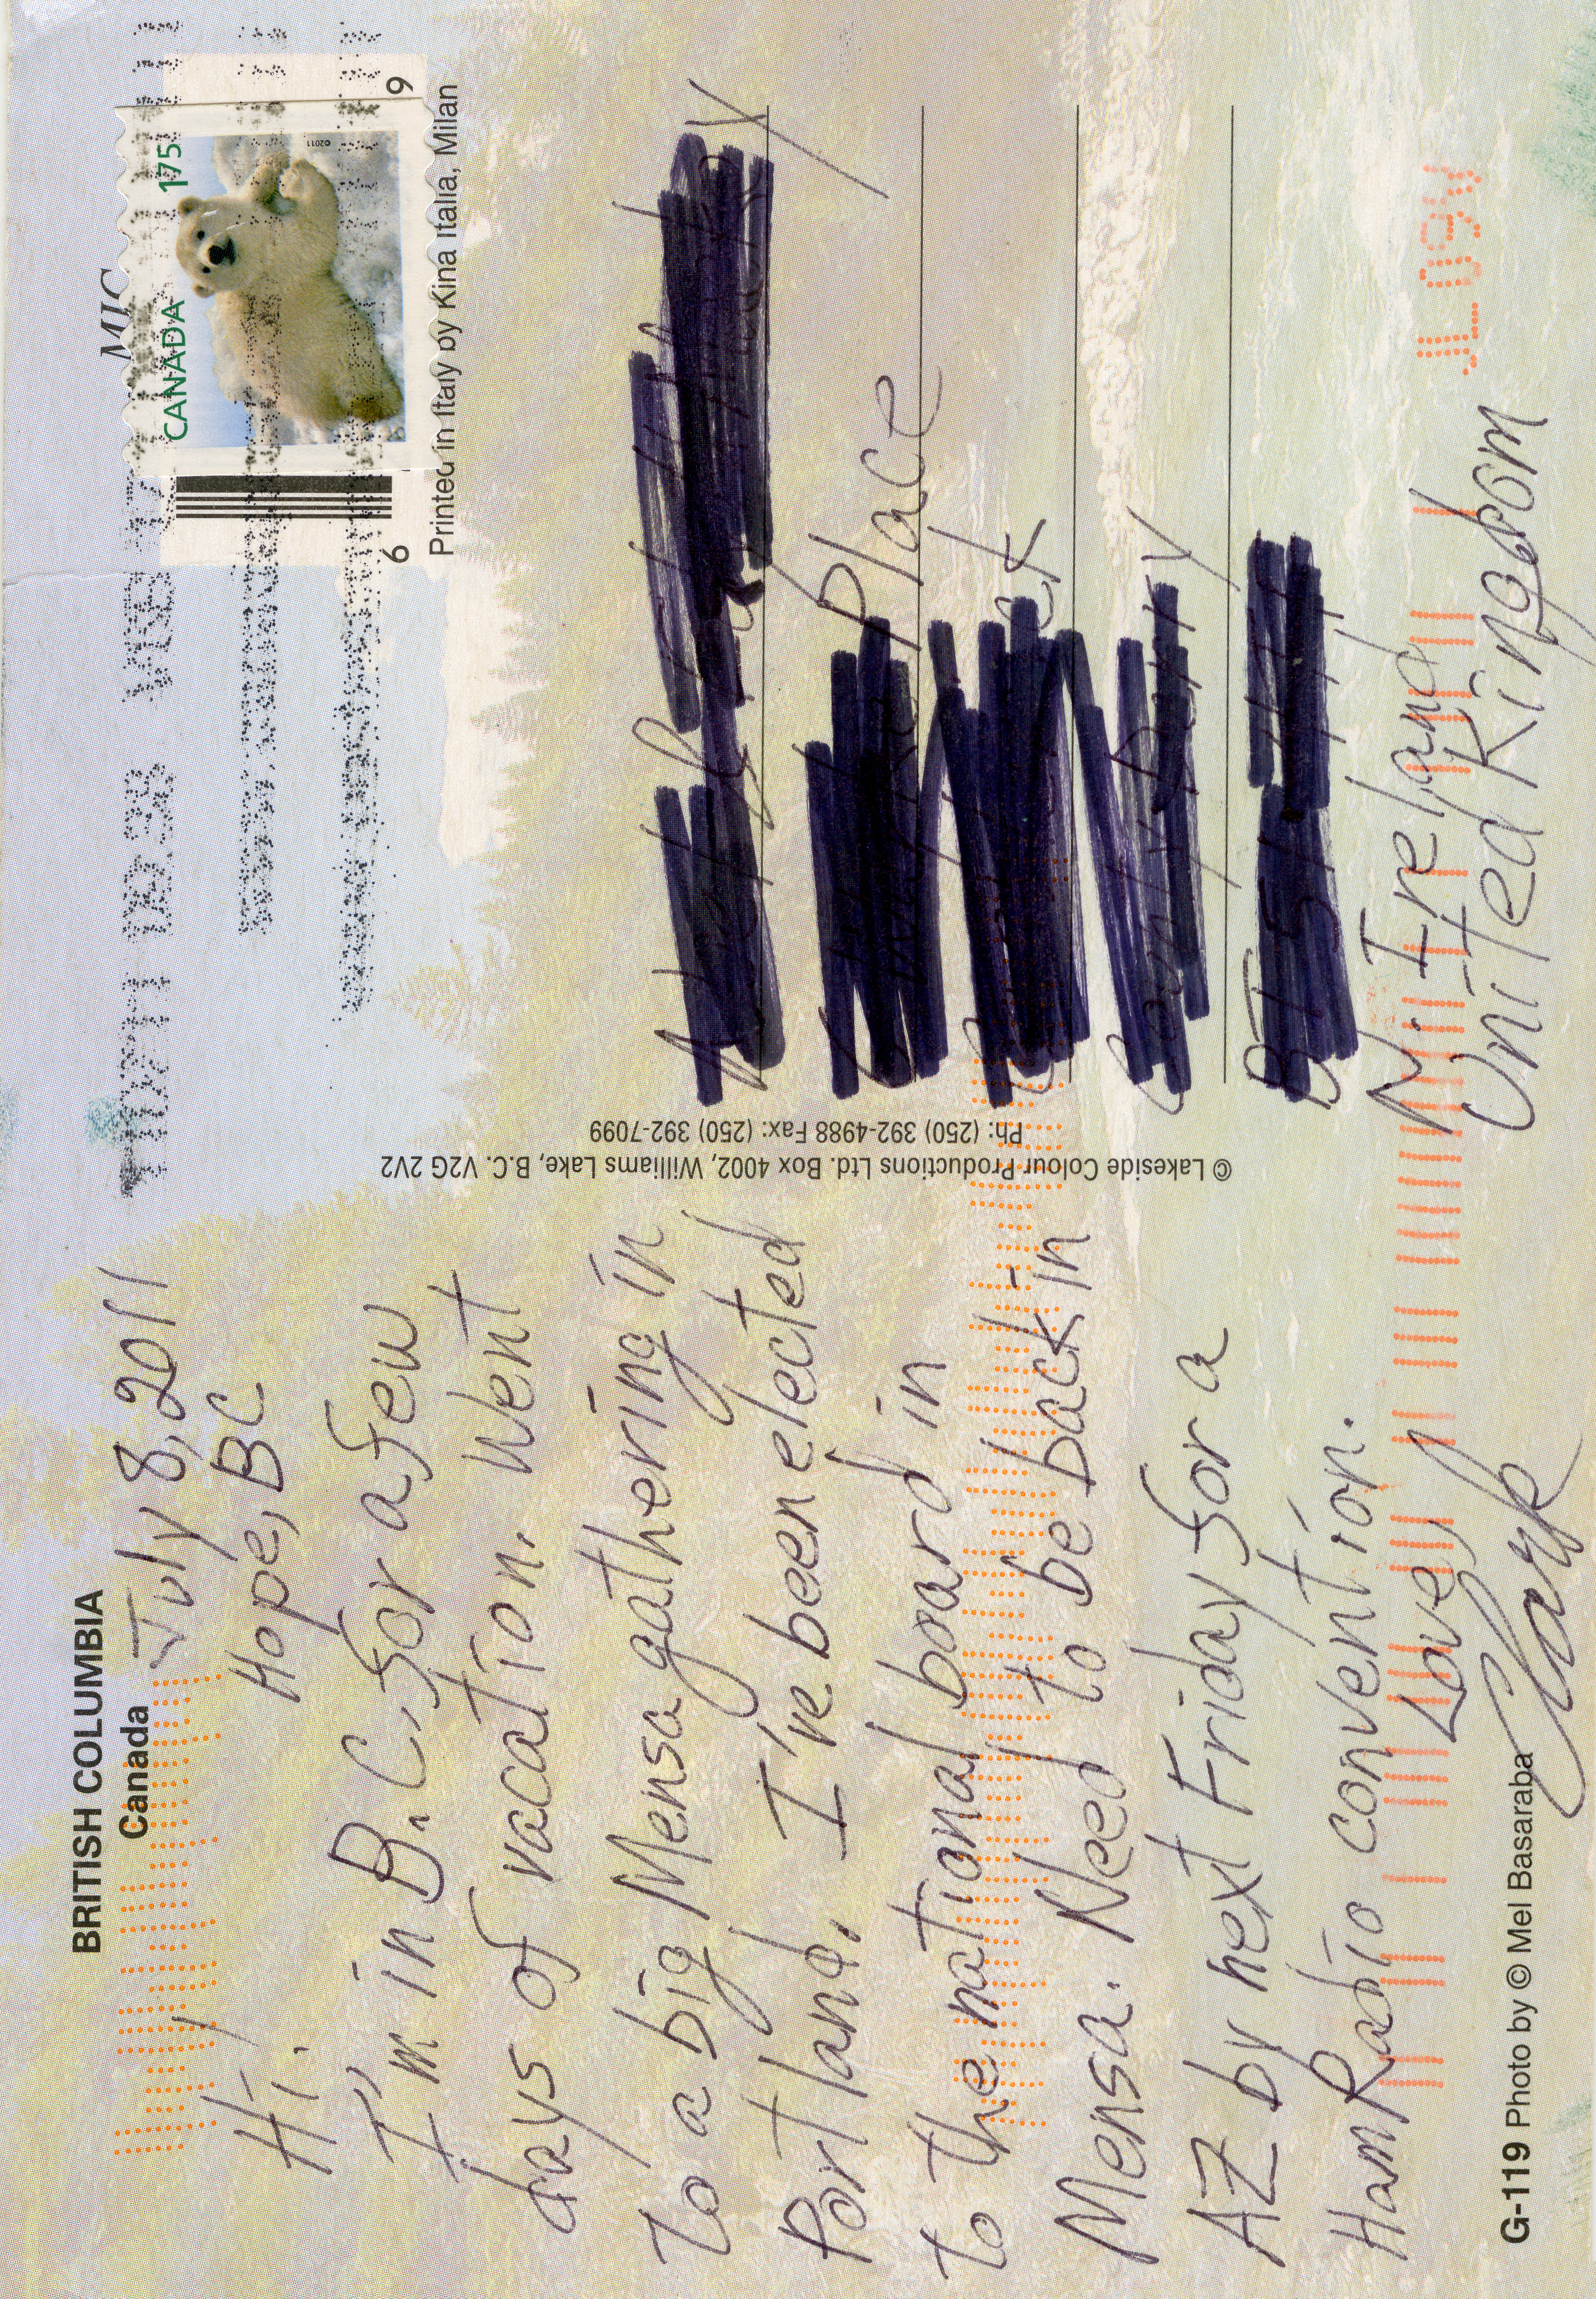 BRITISH COLUMBIA
Canada
July 8, 2011
Hope, BC
Hi!
I'm in B.C. for a few
days of vacation. Went
to a big Mensa gathering in
Portland. I've been elected
to the national board in
Mensa. Need to be back in
AZ by next Friday for a
Ham Radio convention.
Love,
Clark
G-119 Photo by © Mel Basaraba
© Lakeside Colour Productions Ltd. Box 4002, Williams Lake, B.C. V2G 2V2
Ph: (250) 392-4988 Fax: (250) 392-7099
MIC
CANADA 175
©2011
6 9
Printed in Italy by Kina Italia, Milan
Place
N. Ireland
United Kingdom